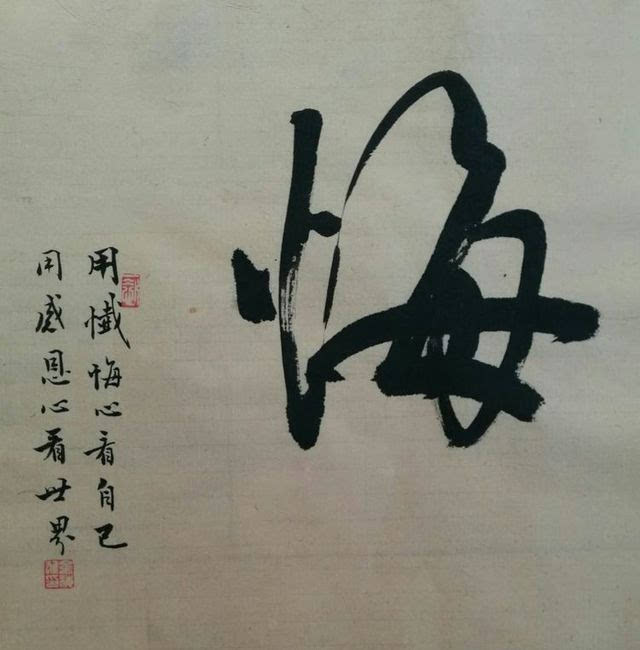 悔
用懺悔心看自己
用感恩心看世界